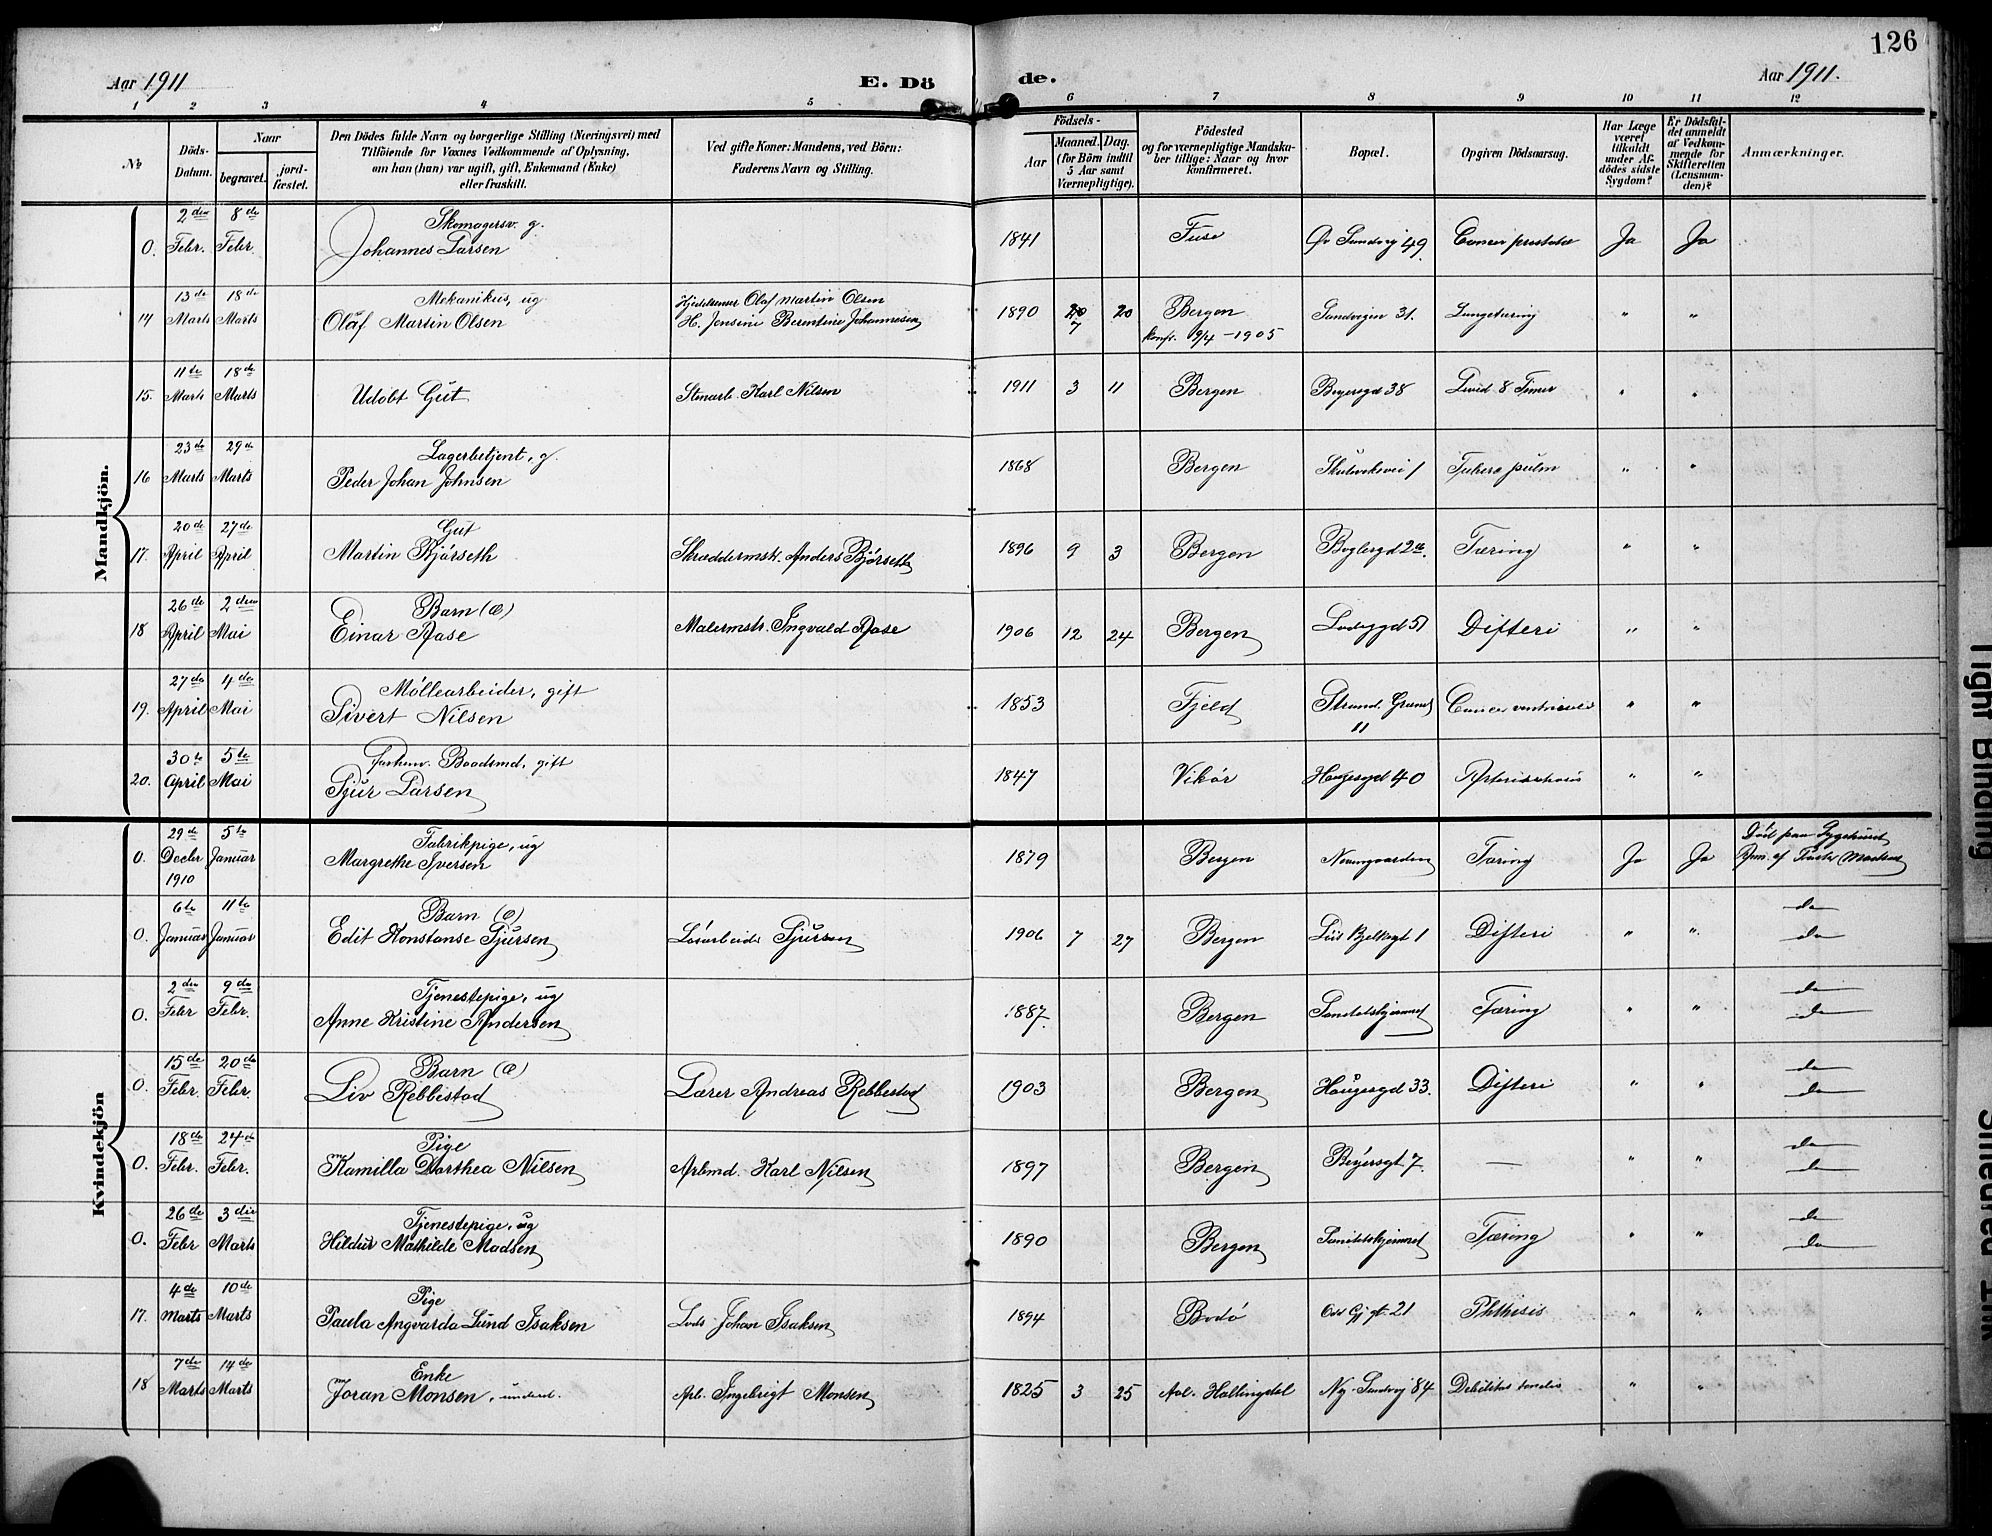 126
Aar 1911
E. Dö
de.
Aar 1911.
1 2 3 4 5 6 7 8 9 10 11 12
No
Döds-
Datum.
Naar
begravet.
jord-
fæstet.
Den Dödes fulde Navn og borgerlige Stilling (Næringsvei) med
Tilföiende for Voxnes Vedkommende af Oplysning,
om han (hun) var ugift, gift, Enkemand (Enke)
eller fraskilt.
Ved gifte Koner: Mandens, ved Börn:
Faderens Navn og Stilling.
Födsels-
Aar
Maaned. Dag.
(for Börn indtil
5 Aar samt
Værnepligtige).
Födested
og for værnepligtige Mandska-
ber tillige: Naar og hvor
konfirmeret.
Bopæl.
Opgiven Dödsaarsag.
Har Læge
været
tilkaldt
under Af-
dödes sidste
Sygdom?
Er Dödsfal-
det anmeldt
af Vedkom-
mende for
Skifteretten
(Lensman-
den)?
Anmærkninger.
Mandkjön.
2den 8de Skomagersv. g.
0. Febr. Febr. Johannes Larsen 1841 Fuse Øv Sandvig 49 Cancer prostatæ Ja Ja
13de 18de Mekanikus, ug Olaf Martin Olsen
14 Marts Marts Olaf Martin Olsen H. Jensine Berentine Johannesen 1890 7 20 Bergen Sandvigen 31. Lungetæring " "
konf. 9/4 - 1905
11te 18de
15. Marts Marts Udöbt Gut Stenarb. Karl Nilsen 1911 3 11 Bergen Beyersgd 38 Levid 8 Timer " "
23de 29de Lagerbetjent, g.
16 Marts Marts Peder Johan Johnsen 1868 Bergen Skuteviksvei 1 Tuberc pulm " "
20de 27de Gut
17. April April Martin Bjørseth Skræddermstr. Anders Bjørseth 1896 9 3 Bergen Bøglergd 2a. Tæring " "
26de 2den Barn (æ)
18 April Mai Einar Aase Malermstr. Ingvald Aase 1906 12 24 Bergen Ladeggd 51 Difteri " "
27de 4de Møllearbeider, gift
19. April Mai Sivert Nilsen 1853 Fjeld Strand. Grund Cancer ventriculi " "
11
30te 5te Forhenv. Baadsmd, gift
20. April Mai Sjur Larsen 1847 Vikør Haugesgd 40 " "
Kvindekjön
29de 5te Fabrikpige, ug Död paa Sygehuset
0. Decbr Januar Margrethe Iversen 1879 Bergen Tæring Ja Ja Anm. af
1910
6te 11te Barn (æ) do
0. Januar Januar Edit Konstanse Sjursen Løsarbeider Sjursen 1906 7 27 Bergen 1 Difteri " " do
2den 9de Tjenestepige, ug do
0. Febr Febr. Anne Kristine Andersen 1887. Bergen Sanitetshjemmet Tæring " " do
15de 20de Barn (æ) do
0. Febr. Febr. Liv Rebbestad Lærer Andreas Rebbestad 1903 Bergen Haugesgd 33. Difteri " " do
18de 24de Pige do
0. Febr. Febr. Kamilla Dorthea Nilsen Arbmd. Karl Nilsen 1897 Bergen Beyersgt 7. — " " do
26de 3die Tjenestepige, ug do
0. Febr Marts Hildur Mathilde Madsen 1890 Bergen Sanitetshjemmet Tæring " " do
4de 10de Pige
17. Marts Marts Paula Angvarda Lund Isaksen Lods Johan Isaksen 1894 Bodø 21 Phthisis " "
7de 14de Enke
18 Marts Marts Joran Monsen, underst. Arb. Ingebrigt Monsen 1825 3 25 Aal. Hallingdal Ny-Sandvig 84 Debilitas senilis " "
Tight Binding
Smeared Ink